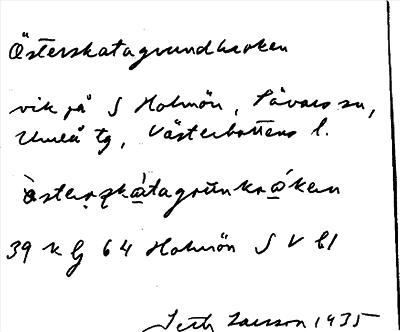 Österskatagrundkroken
vik på S Holmön, Sävars sn,
Umeå tg, Västerbottens l.
òsterskàtagrunkróken
39 K lj 64 Holmön S V bl
Seth Larsson 1935